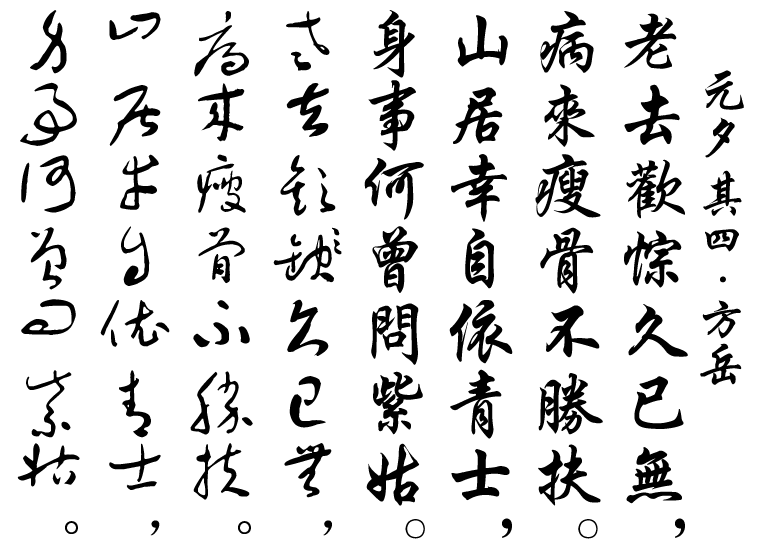 元夕 其四·方岳
老去歡悰久已無，
病來瘦骨不勝扶。
山居幸自依青士，
身事何曾問紫姑。
老去歡久已無，
病來瘦骨不勝扶。
山居幸自依青士，
身事何曾問紫姑。